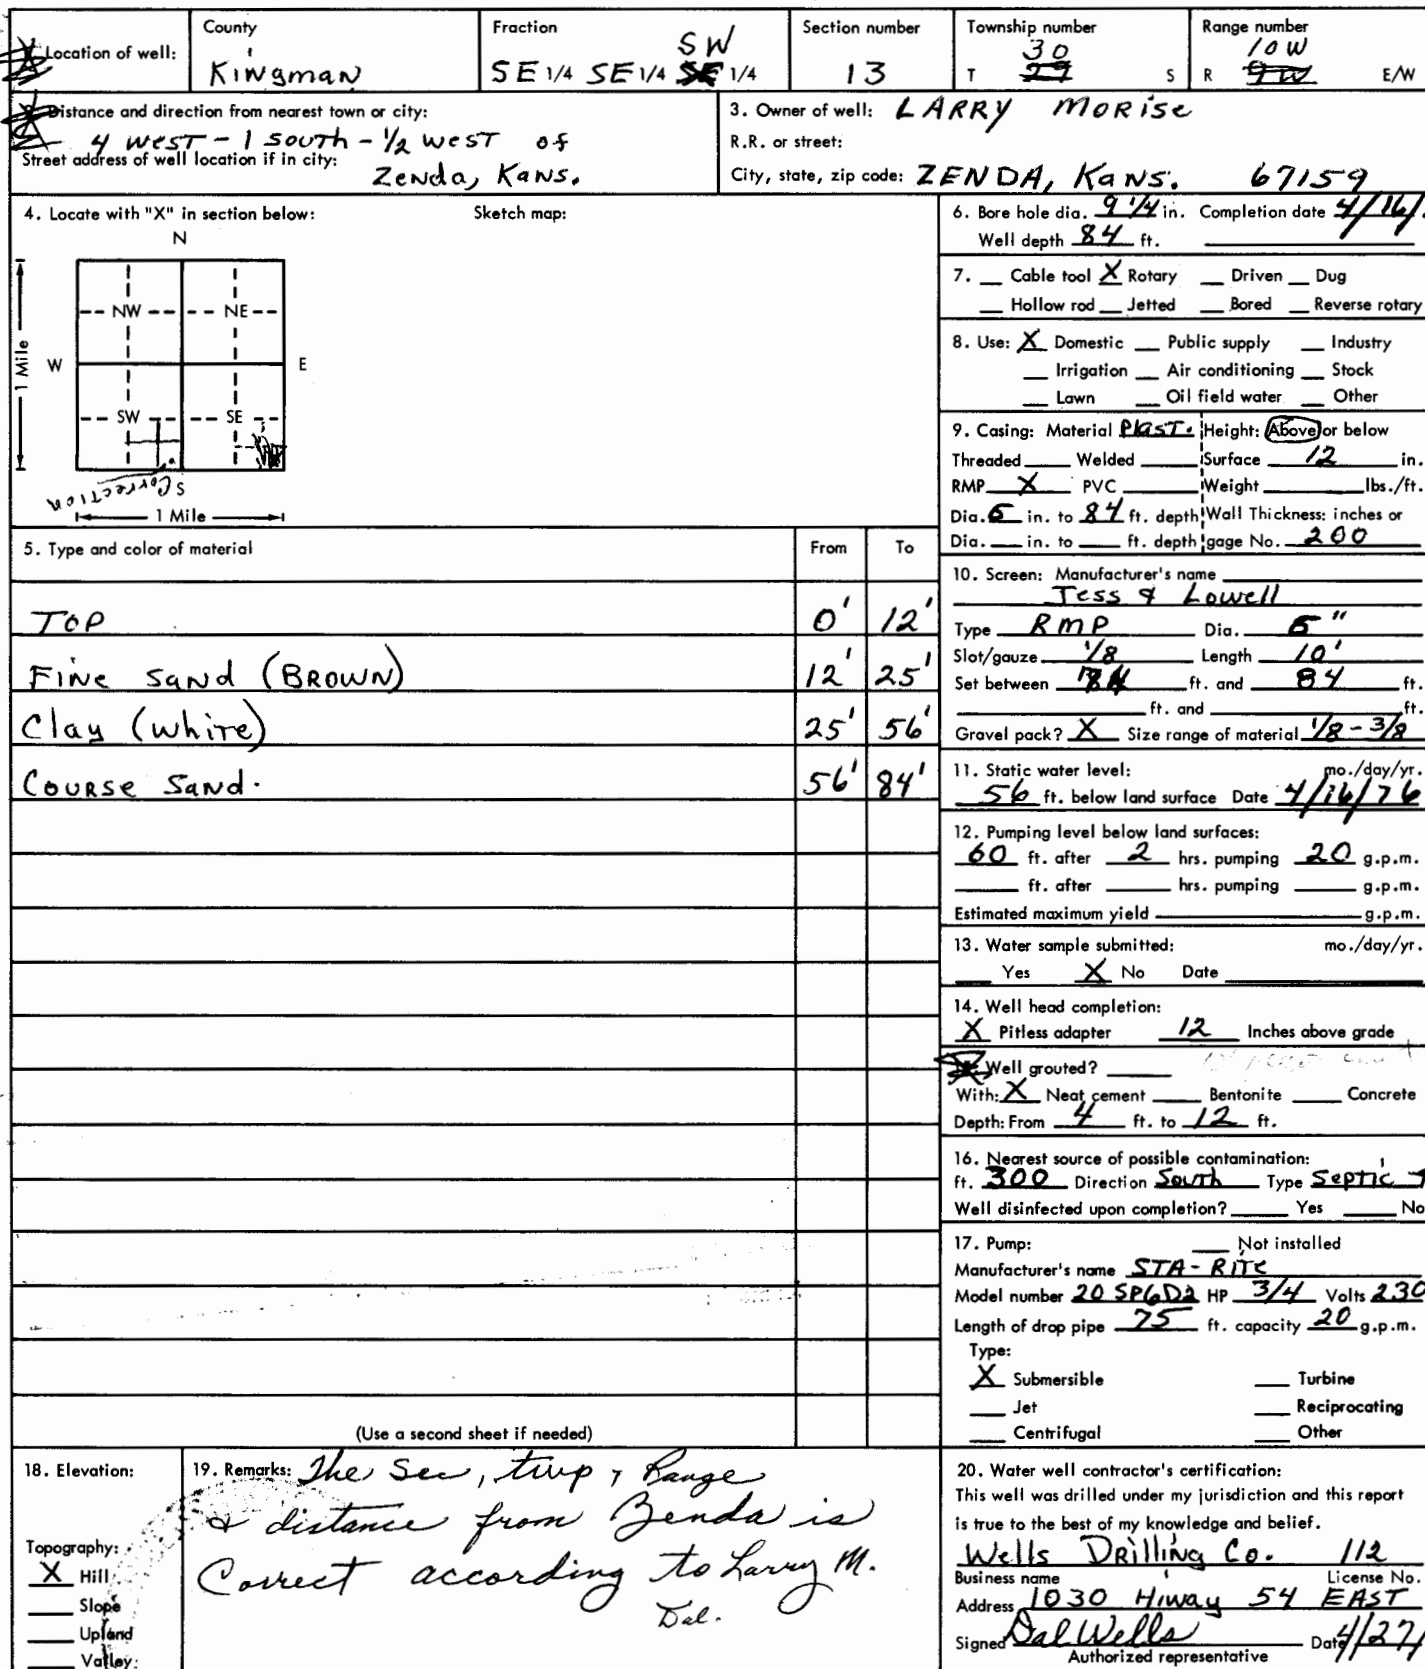 County
Fraction
Section number
Township number
Range number
SW
30
10W
Location of well:
Kingman
SE 1/4 SE 1/4 SE 1/4
13
T 29 S
R 9W E/W
Distance and direction from nearest town or city:
4 west - 1 south - 1/2 west of
Street address of well location if in city:
Zenda, Kans.
3. Owner of well: LARRY MORISE
R.R. or street:
City, state, zip code: ZENDA, Kans. 67159
4. Locate with "X" in section below:
Sketch map:
N
NW NE
1 Mile
W E
SW SE
S
Correction
1 Mile
5. Type and color of material From To
TOP 0' 12'
Fine sand (BROWN) 12' 25'
Clay (white) 25' 56'
Course Sand. 56' 84'
(Use a second sheet if needed)
6. Bore hole dia. 9 1/4 in. Completion date 4/16/
Well depth 84 ft.
7. Cable tool X Rotary Driven Dug
Hollow rod Jetted Bored Reverse rotary
8. Use: X Domestic Public supply Industry
Irrigation Air conditioning Stock
Lawn Oil field water Other
9. Casing: Material Plast. Height: Above or below
Threaded Welded Surface 12 in.
RMP X PVC Weight lbs./ft.
Dia. 5 in. to 84 ft. depth Wall Thickness: inches or
Dia. in. to ft. depth gage No. 200
10. Screen: Manufacturer's name
Jess & Lowell
Type RMP Dia. 5"
Slot/gauze 1/8 Length 10'
Set between 74 ft. and 84 ft.
ft. and ft.
Gravel pack? X Size range of material 1/8 - 3/8
11. Static water level: mo./day/yr.
56 ft. below land surface Date 4/16/76
12. Pumping level below land surfaces:
60 ft. after 2 hrs. pumping 20 g.p.m.
ft. after hrs. pumping g.p.m.
Estimated maximum yield g.p.m.
13. Water sample submitted: mo./day/yr.
Yes X No Date
14. Well head completion:
X Pitless adapter 12 Inches above grade
Well grouted?
With: X Neat cement Bentonite Concrete
Depth: From 4 ft. to 12 ft.
16. Nearest source of possible contamination:
ft. 300 Direction South Type Septic T
Well disinfected upon completion? Yes No
17. Pump: Not installed
Manufacturer's name STA-RITE
Model number 20 SP6D2 HP 3/4 Volts 230
Length of drop pipe 75 ft. capacity 20 g.p.m.
Type:
X Submersible Turbine
Jet Reciprocating
Centrifugal Other
18. Elevation:
Topography:
X Hill
Slope
Upland
Valley
19. Remarks: The Sec, twp, Range
& distance from Zenda is
Correct according to Larry M.
Dal.
20. Water well contractor's certification:
This well was drilled under my jurisdiction and this report
is true to the best of my knowledge and belief.
Wells Drilling Co. 112
Business name License No.
Address 1030 Hiway 54 EAST
Signed Dal Wells Date 4/27/
Authorized representative